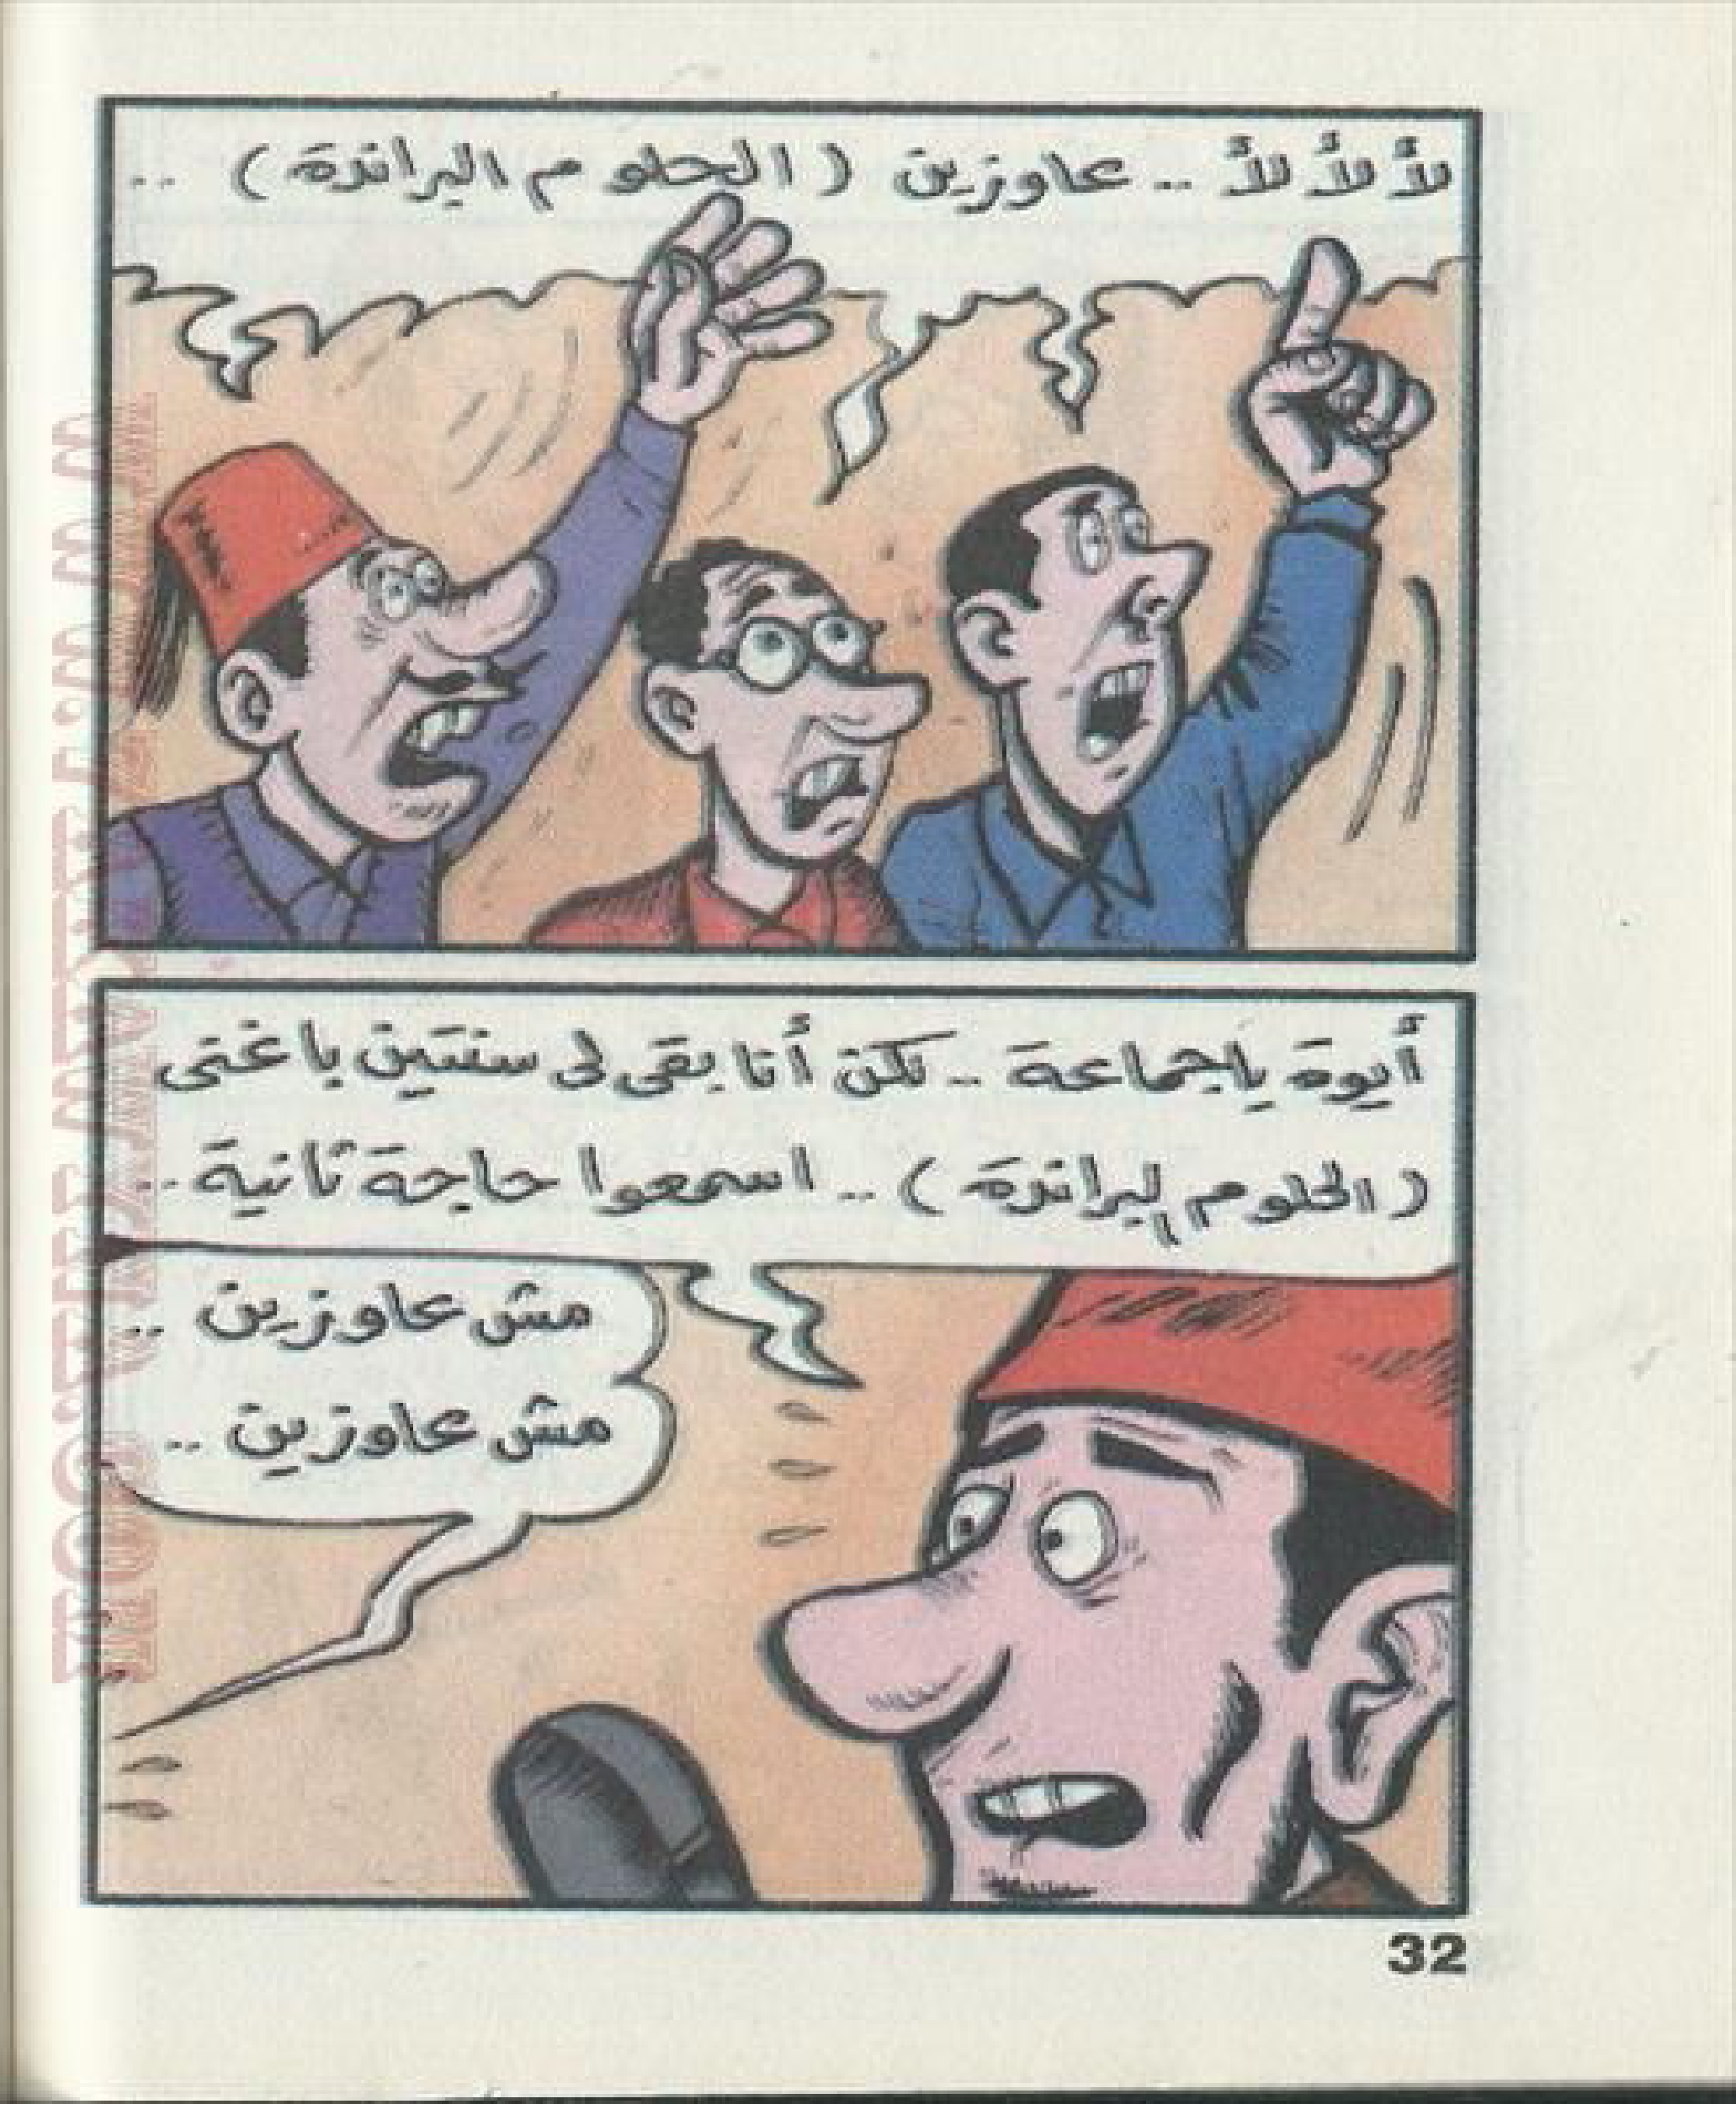 لأ لأ لأ .. عاوزين ( الحلو م البراندة ) ..
أيوة ياجماعة .. لكن أنا بقى لى سنتين باغنى
( الحلو م البراندة ) .. اسمعوا حاجة تانية ..
مش عاوزين ..
مش عاوزين ..
32